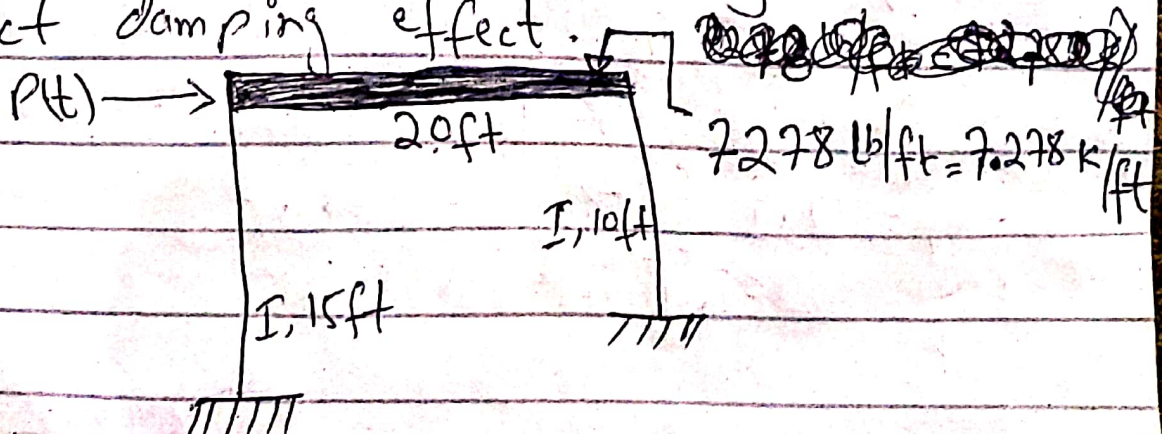 ct damping effect.
P(t)
20ft
7278 lb/ft = 7.278 K/ft
I, 10ft
I, 15ft